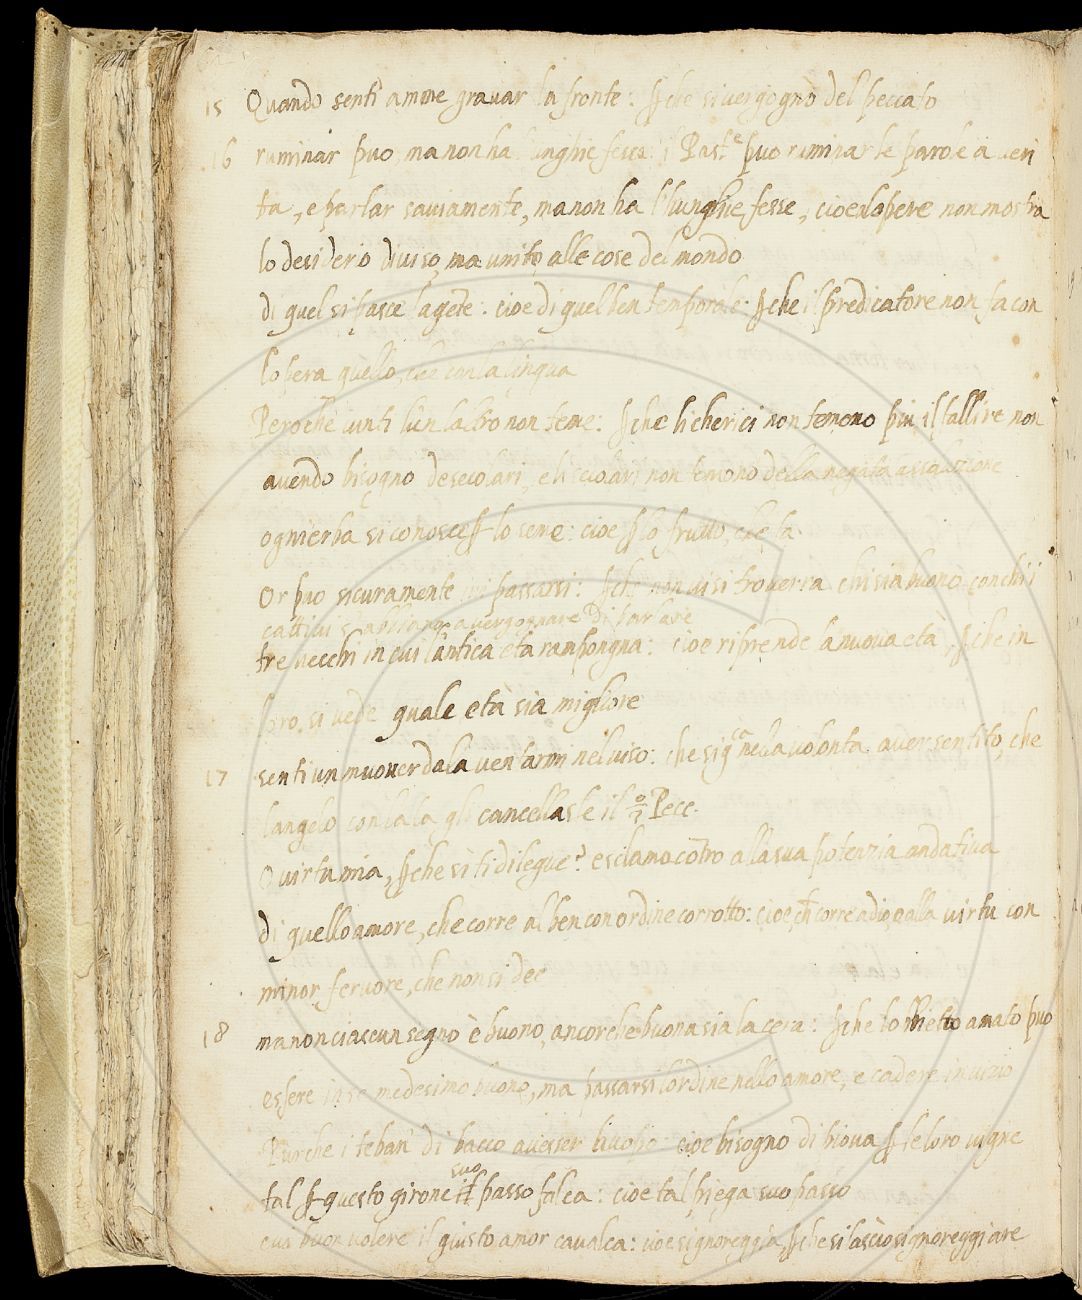 15 Quando senti amme gravar la fronte: perche si vergognò del peccato
16 ruminar può, ma non ha l'unghie fesse: il Past.e può ruminar le parole a veri
tà, e parlar saviamente, ma non ha l'unghie fesse, cioe lopere non mostra
lo desiderio diviso, ma unito alle cose del mondo
di quel si pasce la gete: cioe di quel ben temporale: perche il predicatore non fa con
lopera quello, che con la lingua
Peroche iunti lun laltro non teme: perche li cherici non temono piu il fallire non
avendo bisogno de secolari, e li secolari non temono della negata assoluzione
ogni erba si conosce per lo seme: cioe per lo frutto, che fa
Or può sicuramente ivi passarsi: perche non vi si troverra chi sia buono con chi i
cattivi s' abbiano a vergognare di parlare
tre vecchi in cui l'antica età rampongna: cioe riprende la nuova età, perche in
loro si vede quale età sia migliore
17 senti un muover dala ventarmi nel viso: che sig.ca nela volonta aver sentito, che
langelo con lala gli cancellasse il Pecc.
O virtu mia, perche sì ti dilegue? esclamo cotro alla sua potenzia andativa
di quello amore, che corre al ben con ordine corrotto: cioe che corre a dio, e alla virtu con
minor fervore, che non si dee
18 ma non ciascun segno è buono, ancor che buona sia la cera: perche lo obbietto amato può
essere in se medesimo buono, ma passarsi lordine nello amore, e cadere in vizio
Purche i teban di bacco avesser huopo: cioe bisogno di piova per le loro vigne
tal per questo girone suo passo falca: cioe tal piega suo passo
cui buon volere il giusto amor cavalca: cioe signoreggia, perche si lasciò signoreggiare